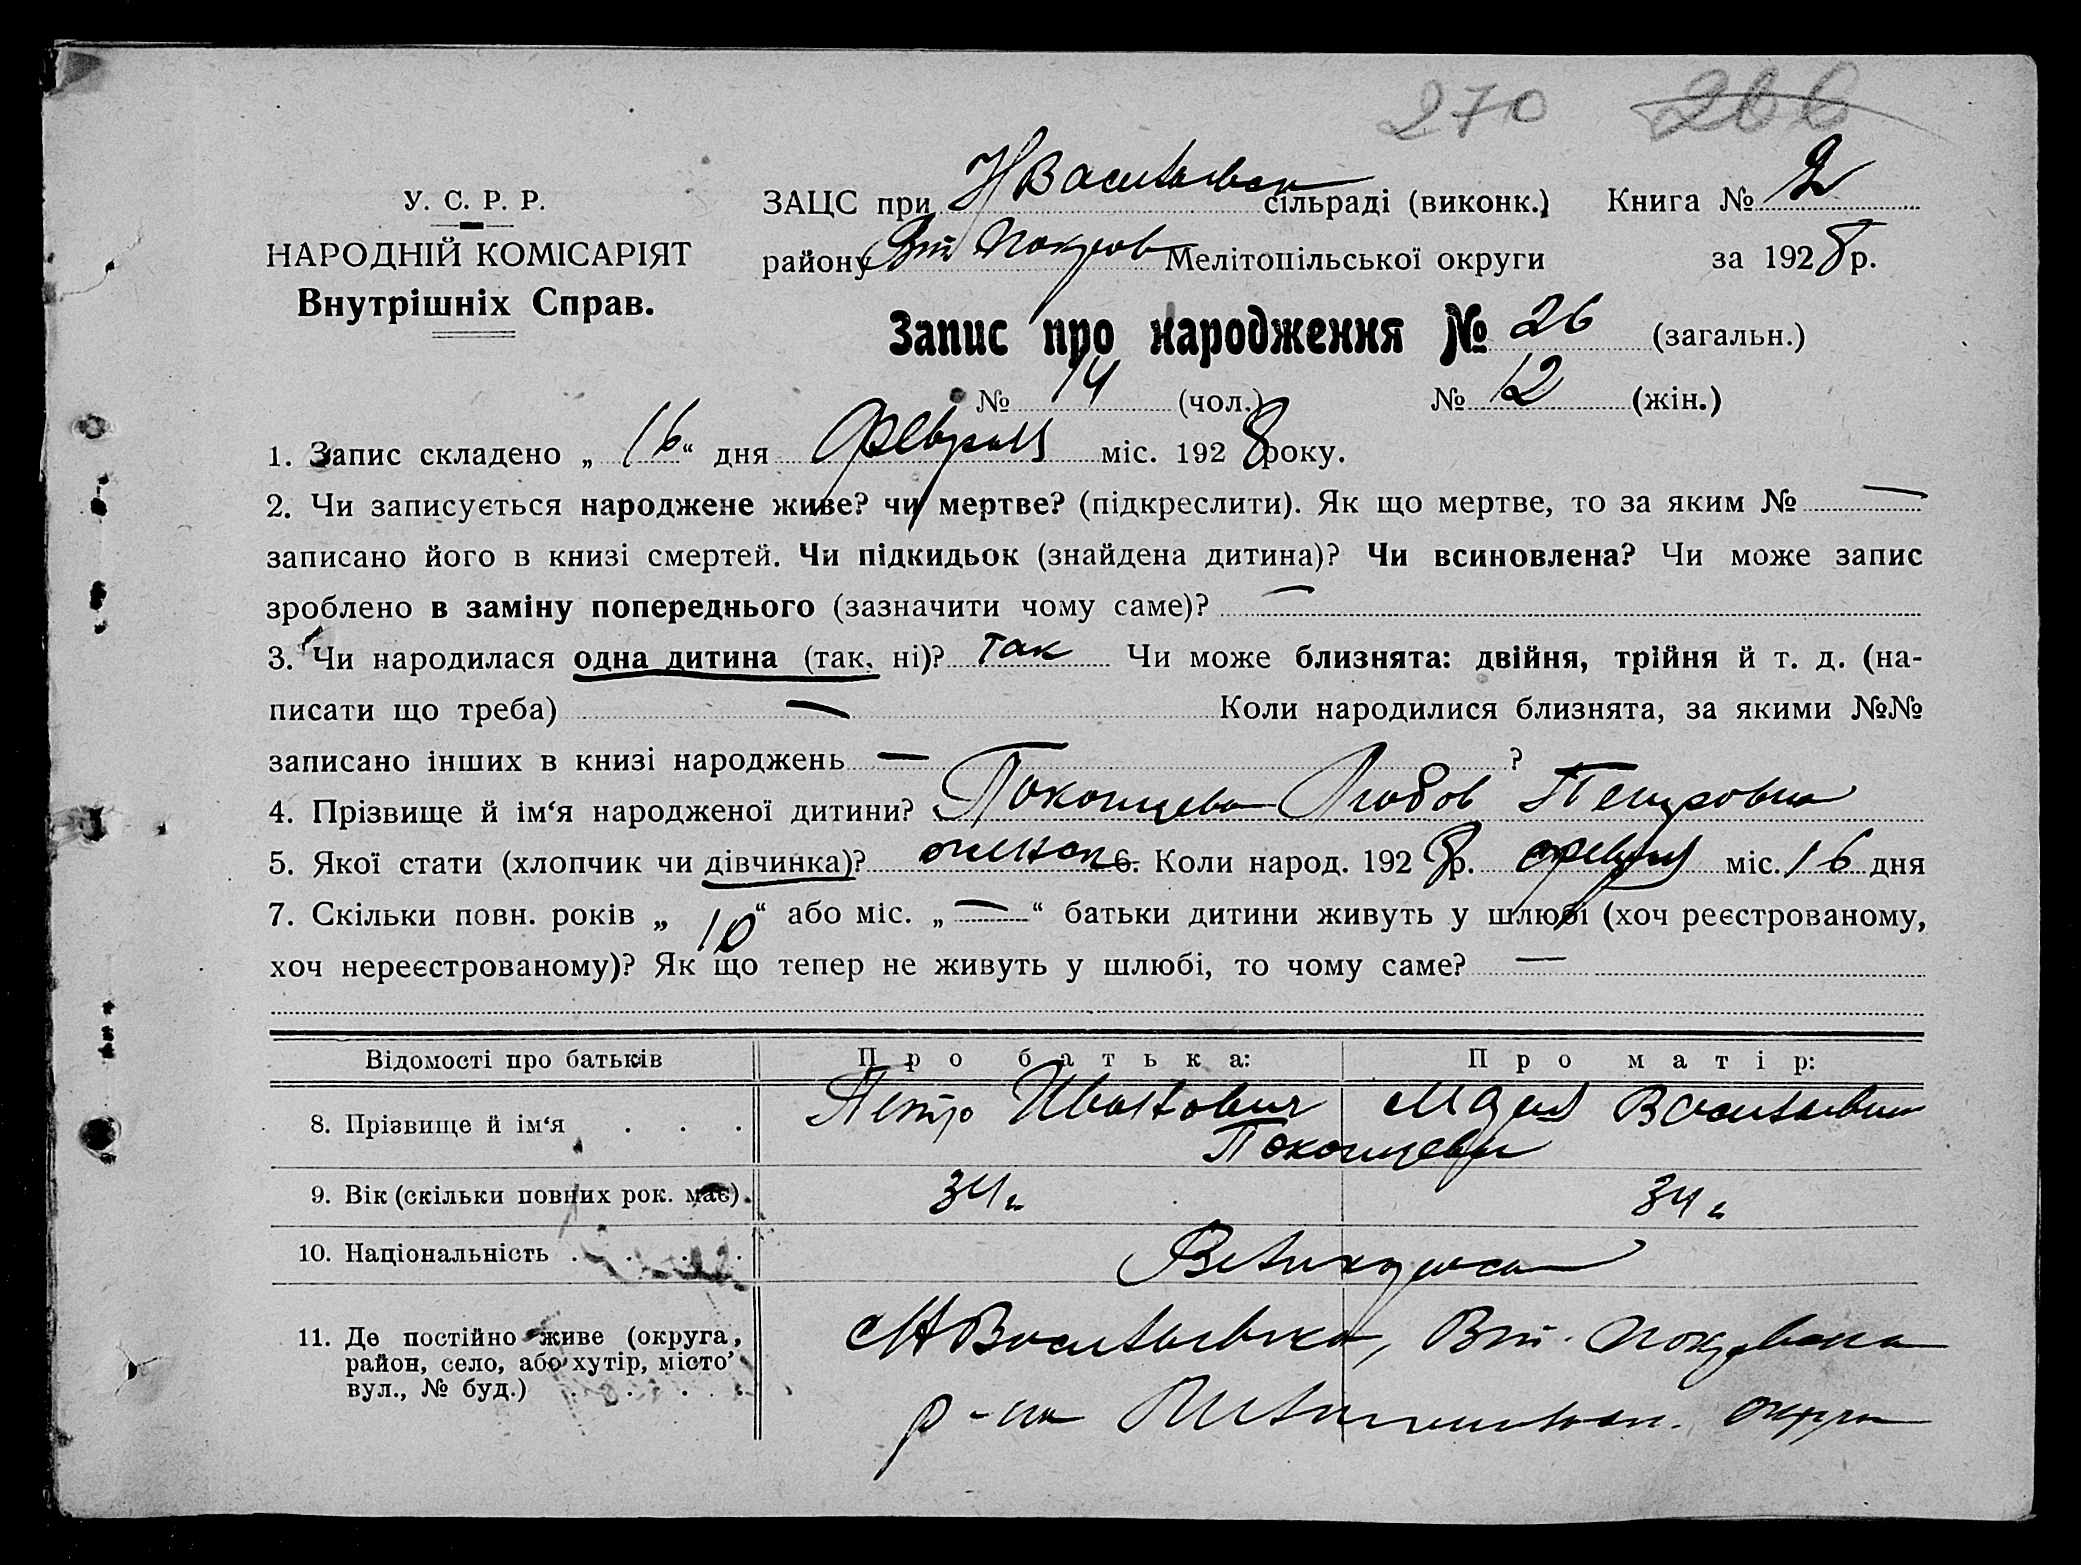 270 266
У. С. Р. Р.
НАРОДНІЙ КОМІСАРІЯТ
Внутрішніх Справ.
ЗАЦС при НВасильевск сільраді (виконк.) Книга № 2
району Вт Покров Мелітопільської округи за 1928 р.
Запис про народження № 26 (загальн.)
№ 14 (чол.) № 12 (жін.)
1. Запис складено „ 16 “ дня февраля міс. 1928 року.
2. Чи записується народжене живе? чи мертве? (підкреслити). Як що мертве, то за яким № —
записано його в книзі смертей. Чи підкидьок (знайдена дитина)? Чи всиновлена? Чи може запис
зроблено в заміну попереднього (зазначити чому саме)? —
3. Чи народилася одна дитина (так, ні)? так Чи може близнята: двійня, трійня й т. д. (на-
писати що треба) — Коли народилися близнята, за якими №№
записано інших в книзі народжень — ?
4. Прізвище й ім‘я народженої дитини? Любов Петровна
5. Якої стати (хлопчик чи дівчинка)? женск 6. Коли народ. 1928 р. февраля міс. 16 дня
7. Скільки повн. років „ 10 “ або міс. „ — “ батьки дитини живуть у шлюбі (хоч реєстрованому,
хоч нереєстрованому)? Як що тепер не живуть у шлюбі, то чому саме? —
Відомості про батьків Про батька: Про матір:
8. Прізвище й ім‘я . . . Петр Иванович Васильевна
9. Вік (скільки повних рок. має). 34 г 34 г
10. Національність . . . . Великоросс
11. Де постійно живе (округа, НВасильевка, Вт. Покровского
район, село, або хутір, місто, р-на Мелитопольск. округа
вул., № буд.) . . . .